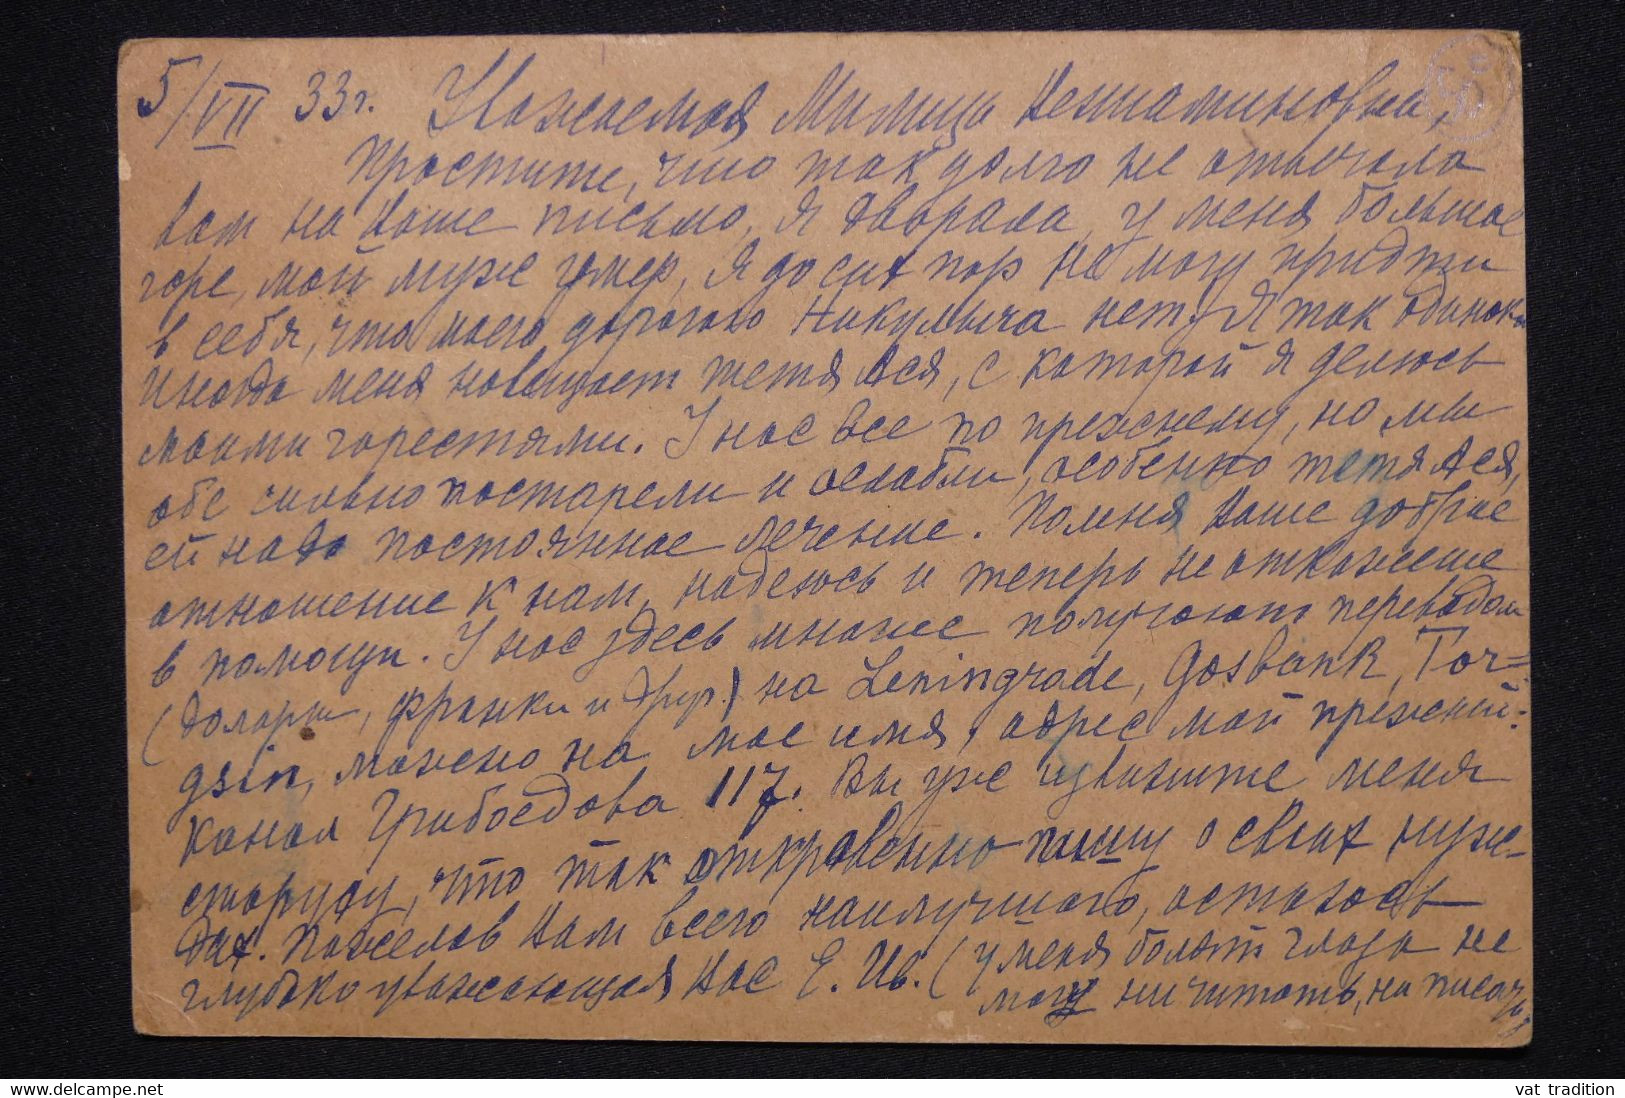 5/VII 33г. Уважаемая Милица Вениаминовна,
простите, что так долго не отвечала
Вам на Ваше письмо, я хворала, у меня большое
горе, мой муж умер, я до сих пор не могу придти
в себя, что моего дорогого Никулыча нет. Я так одинока
Иногда меня навещает тетя Ася, с которой я делюсь
моими горестями. У нас все по прежнему, но мы
обе сильно постарели и ослабли, особенно тетя Ася,
ей надо постоянное лечение. Помня Ваше доброе
отношение к нам, надеюсь и теперь не откажете
в помощи. У нас здесь многие получают переводом
(долары, франки и др.) на Leningrade, Gosbank, Tor-
gsin, можно на мое имя, адрес мой прежний:
канал Грибоедова 117. Вы уж извините меня
старуху, что так откровенно пишу о своих нуж-
дах. Пожелав Вам всего наилучшего, остаюсь
глубоко уважающая Вас Е. Ив. (у меня болят глаза не
могу ни читать, ни писать)
vat tradition
delcampe.net